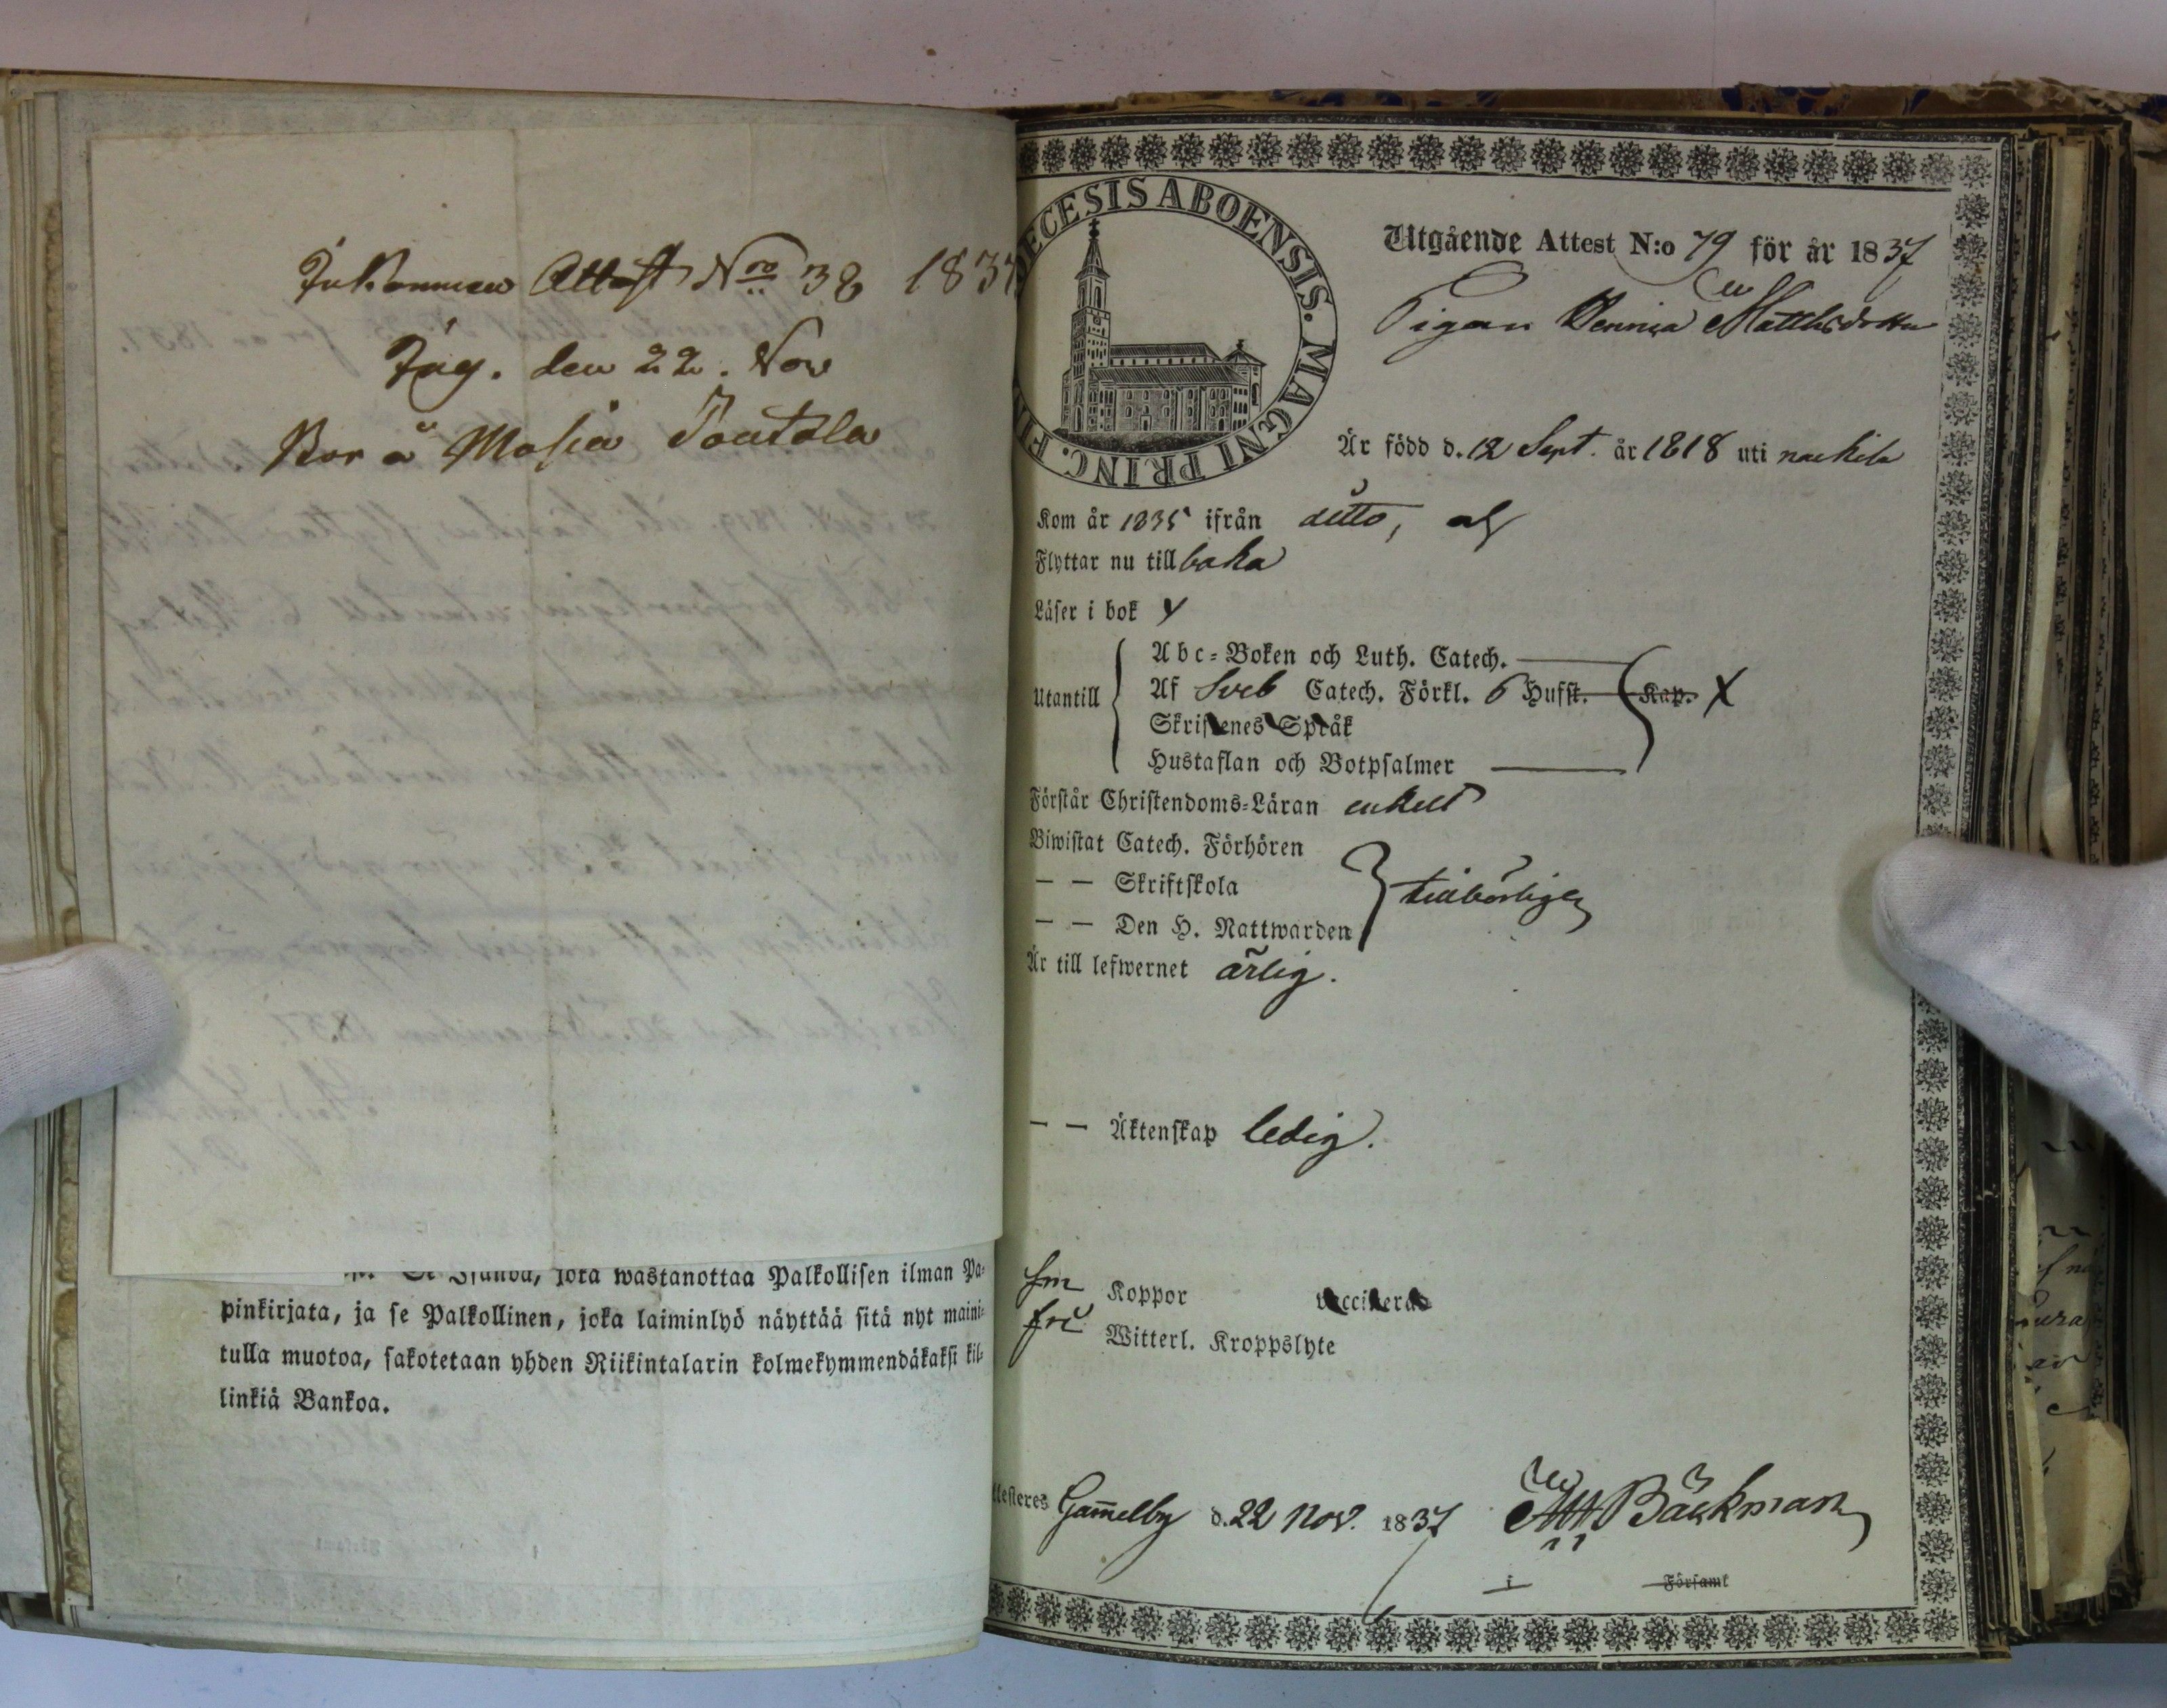 Inkommen Attest Nro 38 1837
Ing. den 22. Nov
Bor å Masia Joutola
pinkirjata, ja se Palkollinen, joka laiminlyö näyttää sitä nyt maini-
tulla muotoa, sakotetaan yhden Riikintalarin kolmekymmendäkaksi kil-
linkiä Bankoa.
DIECESIS ABOENSIS. MAGNI PRINC. FIN
Utgående Attest N:o 79 för år 1837
Pigan Matthsdotter
Är född d. 12 Sept. år 1818 uti
Kom år 1835 ifrån ditto,
Flyttar nu tillbaka
Läser i bok
Utantill
Abc-Boken och Luth. Catech.
Af Sveb Catech. Förkl. 6 Hufst. Kap. X
Skriftenes Språk
Hustaflan och Botpsalmer
Förstår Christendoms-Läran enkelt
Biwistat Catech. Förhören
— — Skriftskola
— — Den H. Nattwarden
tillbörligen
Är till lefwernet ärlig.
— — Äktenskap ledig.
Koppor vaccinerad
fri Witterl. Kroppslyte
Attesteres Gam̄elby d. 22 Nov. 1837 Bäckman
i Församl